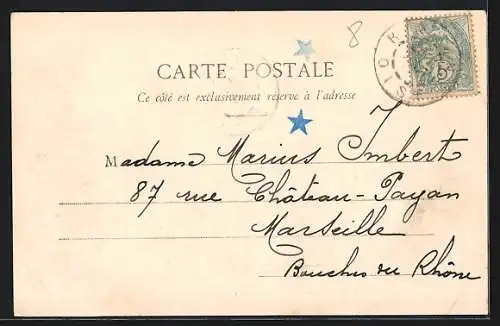 8
CARTE POSTALE
Ce côté est exclusivement réservé à l'adresse
Madame Marius Imbert
87 rue Château-Payan
Marseille
Bouches du Rhône